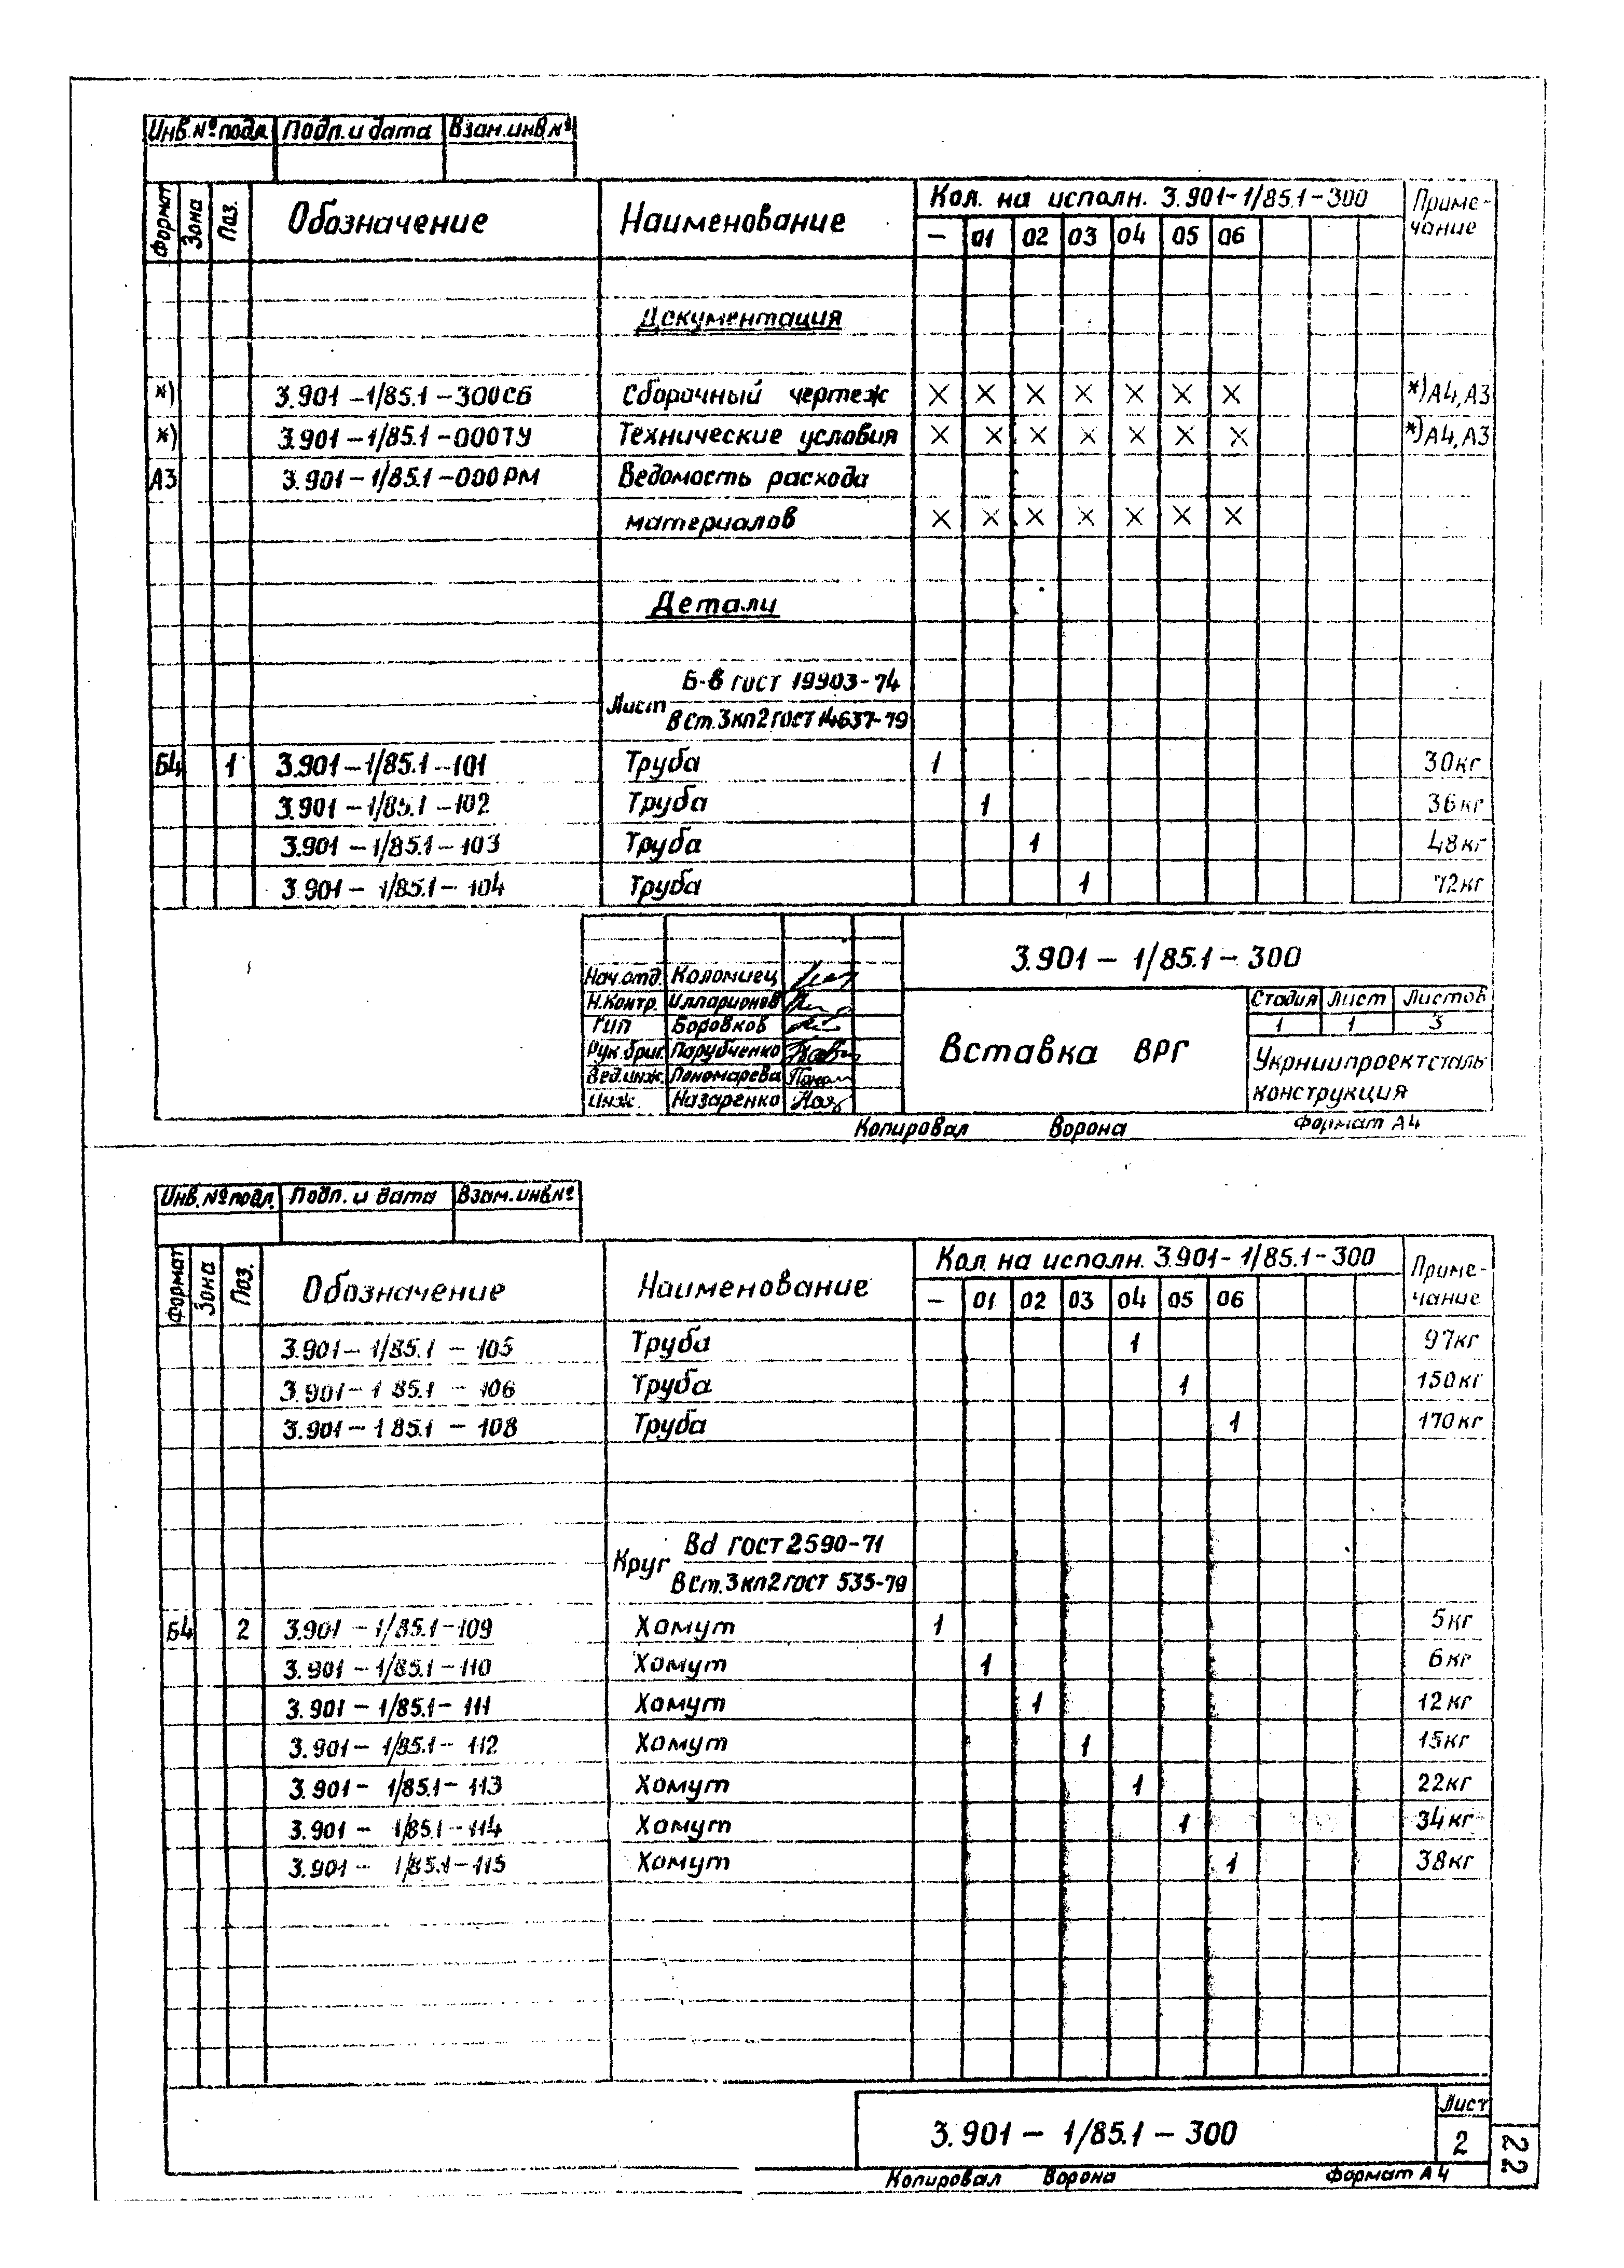 Инв.№подл. Подп.и дата Взам.инв.№
Формат Зона Поз. Обозначение Наименование Кол. на исполн. 3.901-1/85.1-300 Приме-
чание
— 01 02 03 04 05 06
Документация
*) 3.901-1/85.1-300СБ Сборочный чертеж × × × × × × × *)А4,А3
*) 3.901-1/85.1-000ТУ Технические условия × × × × × × × *)А4,А3
А3 3.901-1/85.1-000РМ Ведомость расхода
материалов × × × × × × ×
Детали
Б-в ГОСТ 19903-74
Лист
В Ст.3кп2 ГОСТ 14637-79
Б4 1 3.901-1/85.1-101 Труба 1 30кг
3.901-1/85.1-102 Труба 1 36кг
3.901-1/85.1-103 Труба 1 48кг
3.901-1/85.1-104 Труба 1 72кг
3.901-1/85.1-300
Нач.отд. Коломиец
Н.контр. Илларионов
ГИП Боровков
Рук.бриг. Парубченко
Вед.инж. Пономарева
Инж. Назаренко
Вставка ВРГ
Стадия Лист Листов
1 1 3
Укрниипроектсталь
конструкция
Копировал Ворона Формат А4
Инв.№подл. Подп. и дата Взам.инв.№
Формат Зона Поз. Обозначение Наименование Кол. на исполн. 3.901-1/85.1-300 Приме-
чание
— 01 02 03 04 05 06
3.901-1/85.1-105 Труба 1 97кг
3.901-1 85.1-106 Труба 1 150кг
3.901-1 85.1-108 Труба 1 170кг
Вd ГОСТ 2590-71
Круг
В Ст.3кп2 ГОСТ 535-79
Б4 2 3.901-1/85.1-109 Хомут 1 5кг
3.901-1/85.1-110 Хомут 1 6кг
3.901-1/85.1-111 Хомут 1 12кг
3.901-1/85.1-112 Хомут 1 15кг
3.901-1/85.1-113 Хомут 1 22кг
3.901-1/85.1-114 Хомут 1 34кг
3.901-1/85.1-115 Хомут 1 38кг
3.901-1/85.1-300
Лист
2
22
Копировал Ворона Формат А4